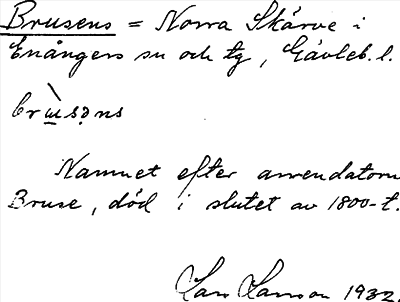 Brusens = Norra Skärve i
Enångers sn och tg, Gävleb. l.
brùsəns
Namnet efter arrendatorn
Bruse, död i slutet av 1800-t.
Lars Larsson 1932.